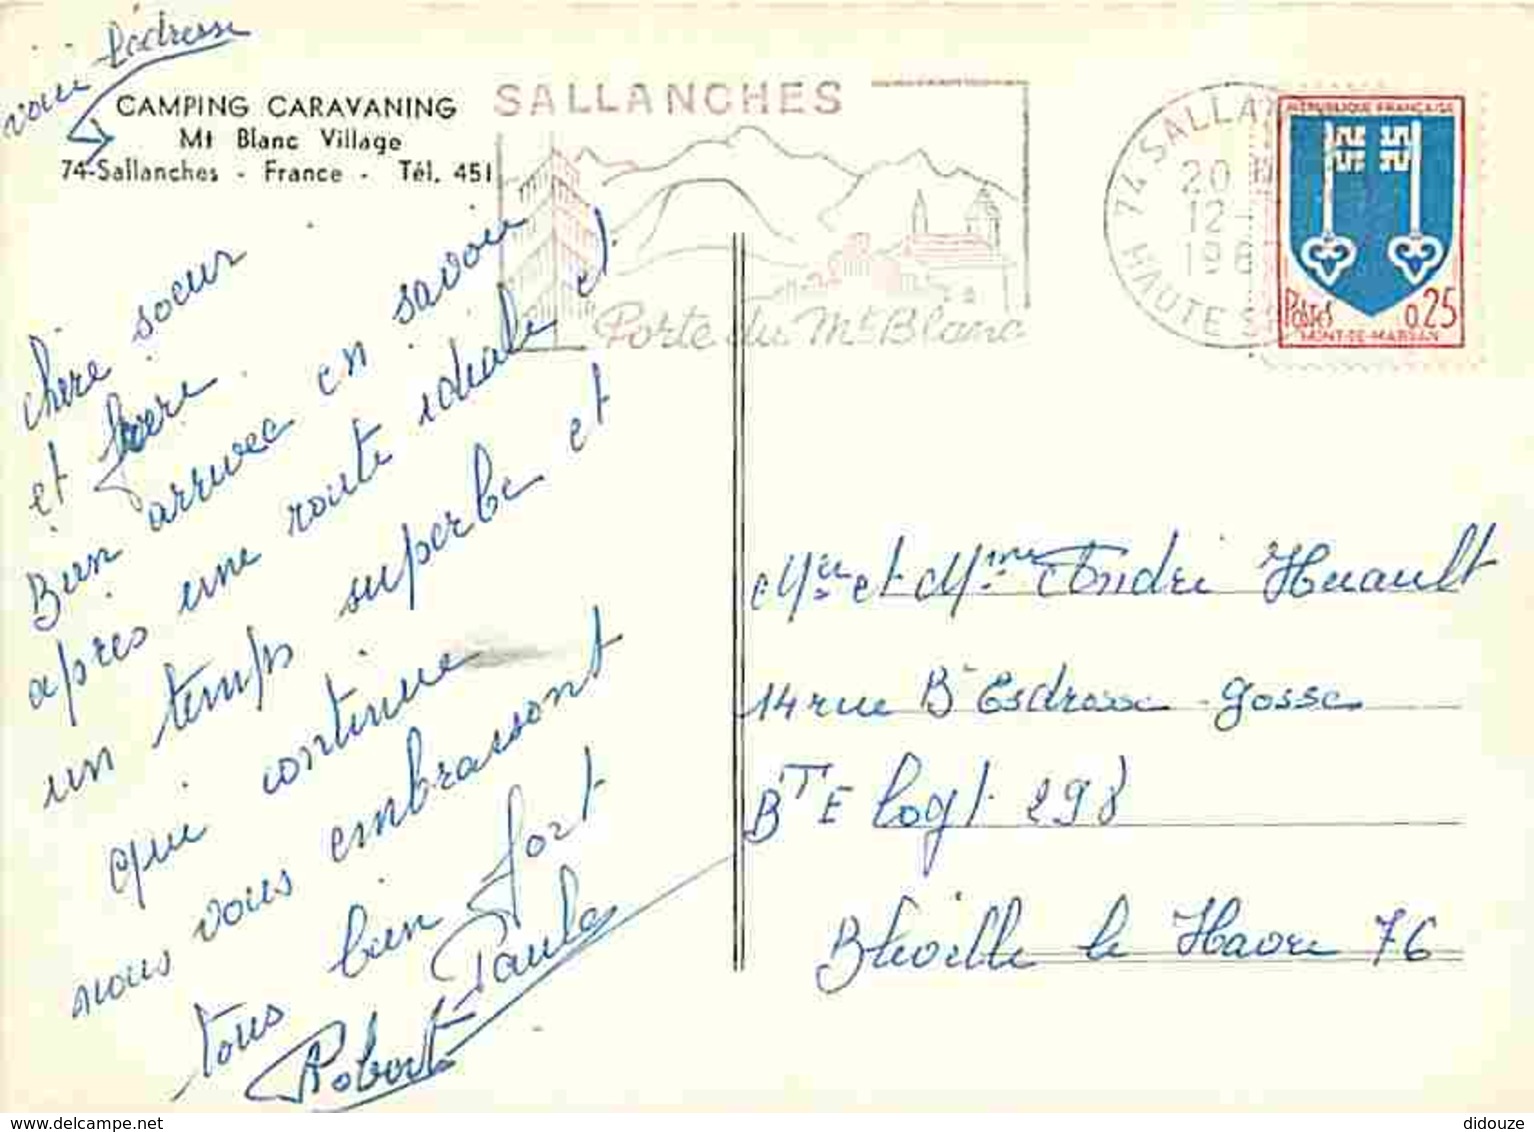 voici l'adresse
CAMPING CARAVANING
Mt Blanc Village
74-Sallanches - France - Tél. 451
SALLANCHES
Porte du Mt Blanc
74 SALLAN
20 H
12-
196
HAUTE S
RÉPUBLIQUE FRANÇAISE
POSTES 0,25
MONT-DE-MARSAN
chère soeur
et frere
Bien arrivee en savoie
après une route idéale et
un temps superbe et
qui continue
nous vous embrassont
tous bien fort
Paule
Robert
Mr et Mme André Huault
14 rue Bd Esdrose Gosse
BTE logt 298
Bleville le Havre 76
didouze